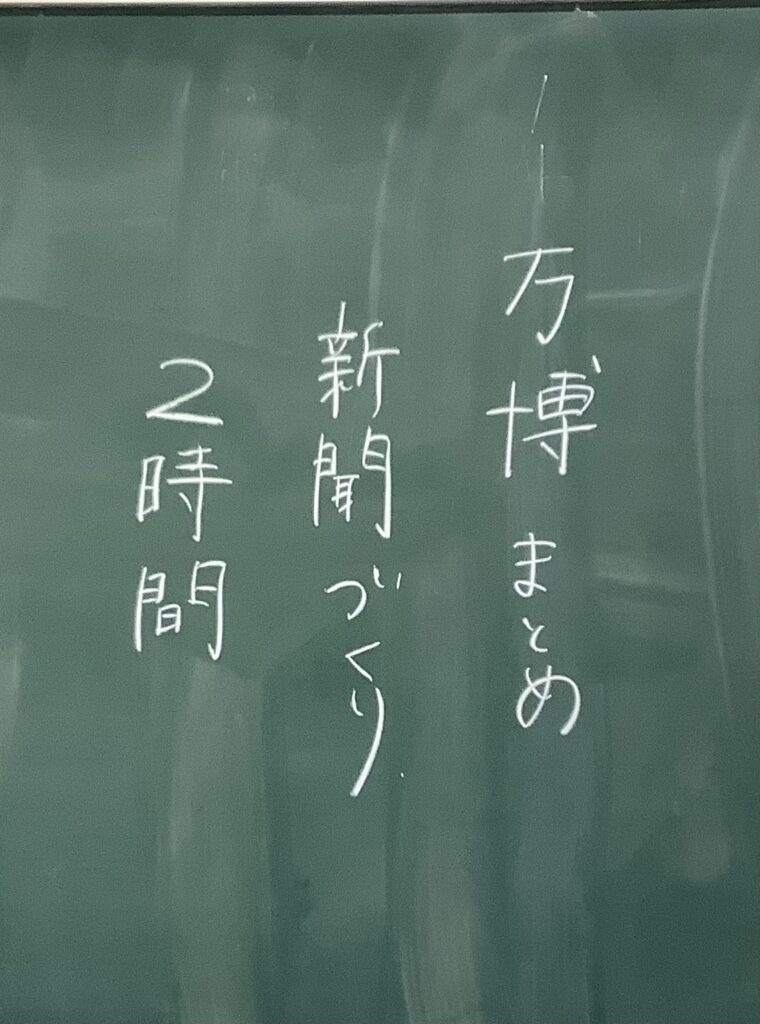 万博まとめ
新聞づくり
2時間